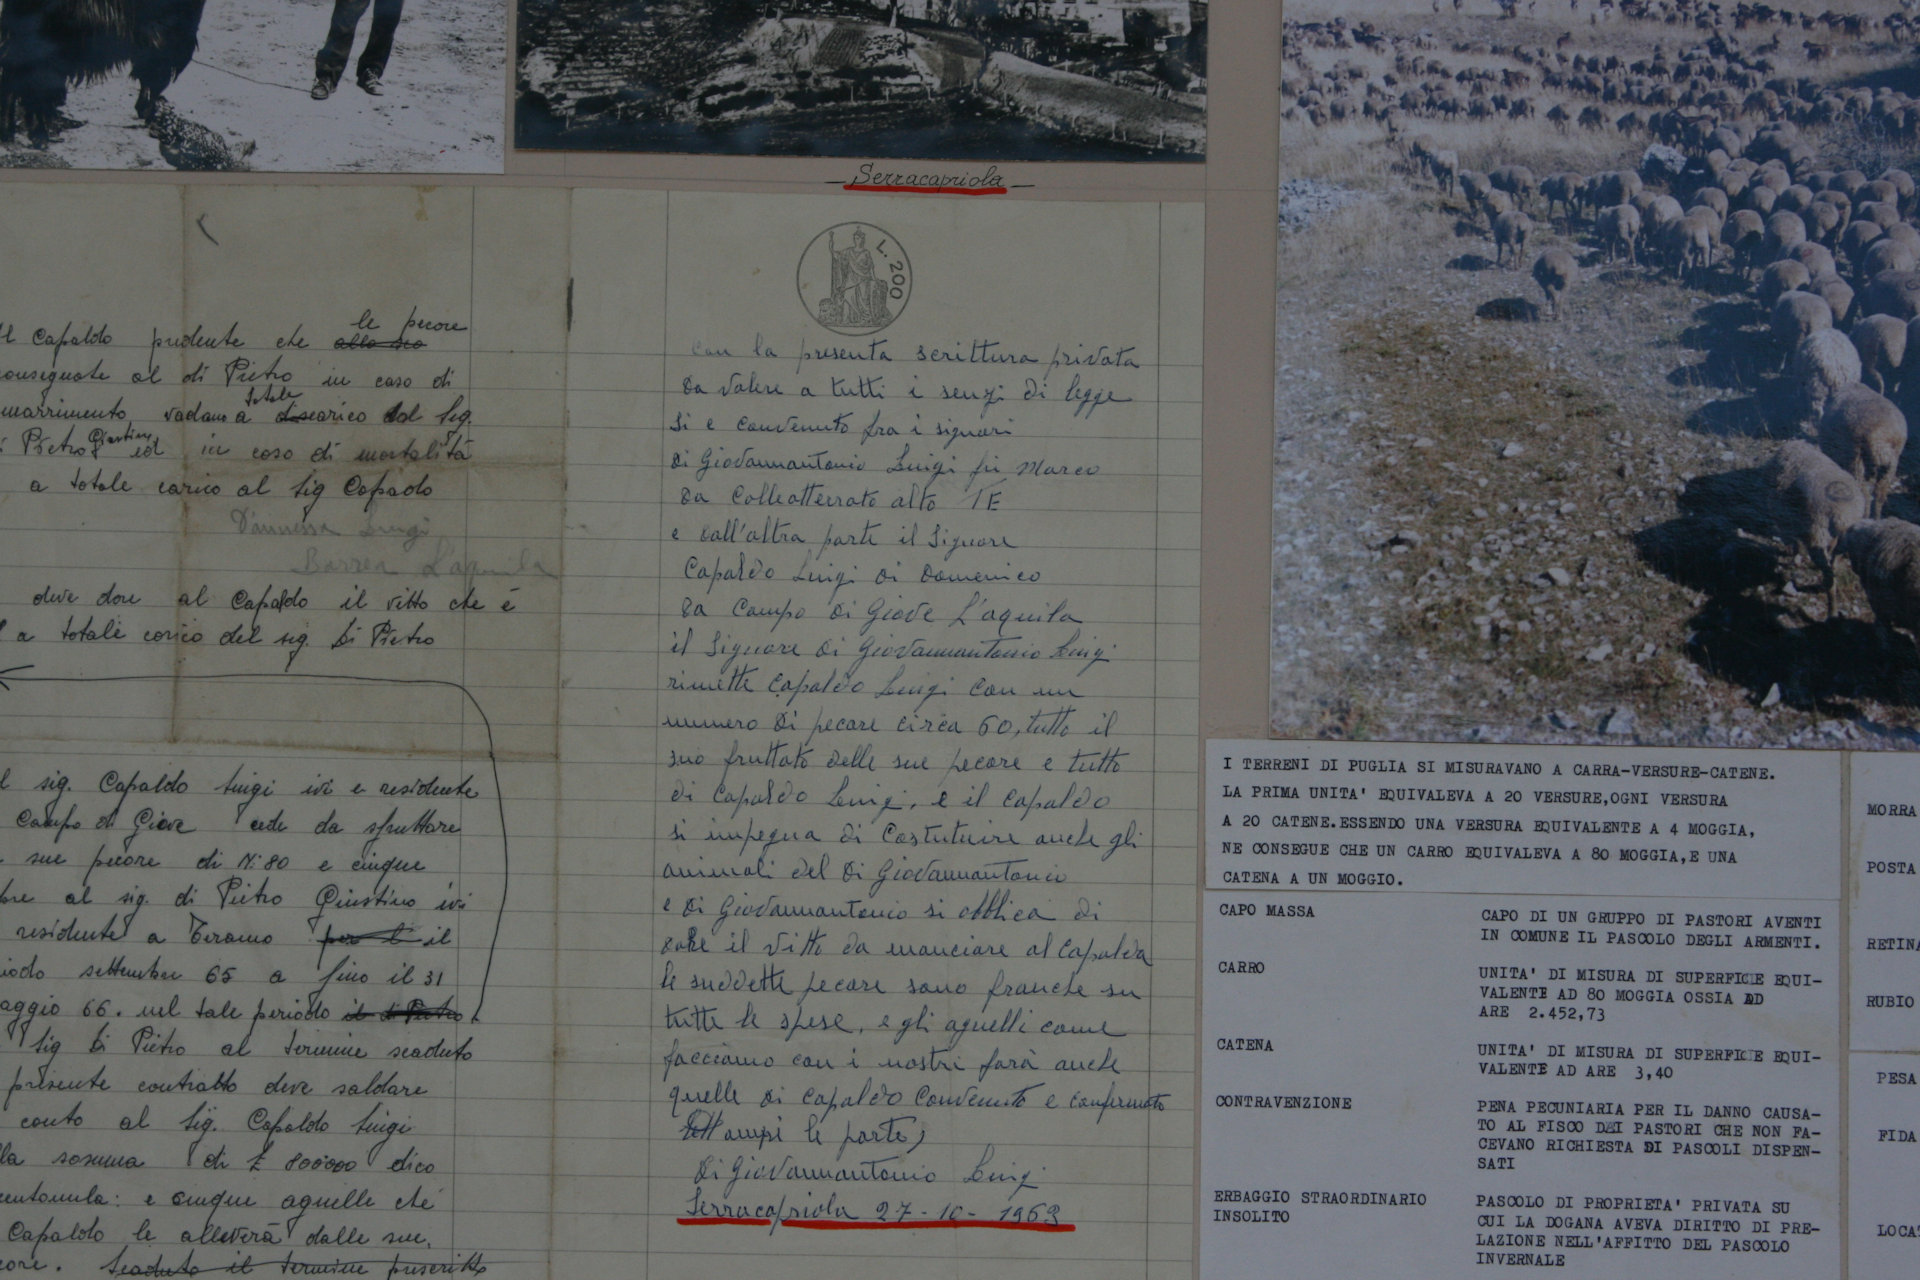 Serracapriola
L. 200
Capaldo prudente che le pecore
consegnate al di Pietro in caso di
vadano a totale carico dal Sig.
Pietro Giustino ed in caso di mortalità
a totale carico al Sig Capaldo
Luigi
Barrea L'aquila
deve dare al Capaldo il vitto che è
a totale carico del sig. Di Pietro
sig. Capaldo Luigi ivi e residente
Campo di Giove cede da sfruttare
sue pecore di N: 80 e cinque
al sig. di Pietro Giustino ivi
residente a Teramo per il il
settembre 65 a fino il 31
66. nel tale periodo il di Pietro
Sig Di Pietro al termine scaduto
presente contratto deve saldare
conto al Sig. Capaldo Luigi
somma di £ 800000 dico
e cinque agnelle che
Capaldo le alleverà dalle sue.
Scaduto il termine prescritto
con la presenta scrittura privata
da valere a tutti i senzi di legge
Si e convenuto fra i signori
di Giovannantonio Luigi fu Marco
da Colleatterrato alto TE
e dall'altra parte il Signore
Capaldo Luigi di Domenico
da Campo di Giove L'aquila
il Signore di Giovannantonio Luigi
rimette Capaldo Luigi con un
numero di pecore circa 60, tutto il
suo fruttato delle sue pecore e tutto
di Capaldo Luigi, e il Capaldo
si impegna di Costutuire anche gli
animali del di Giovannantonio
e di Giovannantonio si obblica di
dare il vitto da manciare al Capaldo
le suddette pecore sono franche su
tutte le spese, e gli agnelli come
facciamo con i nostri farà anche
quelle di Capaldo Convenuto e confermato
ampi le parte,
Di Giovannantonio Luigi
Serracapriola 27-10-1963
I TERRENI DI PUGLIA SI MISURAVANO A CARRA-VERSURE-CATENE.
LA PRIMA UNITA' EQUIVALEVA A 20 VERSURE,OGNI VERSURA
A 20 CATENE.ESSENDO UNA VERSURA EQUIVALENTE A 4 MOGGIA,
NE CONSEGUE CHE UN CARRO EQUIVALEVA A 80 MOGGIA,E UNA
CATENA A UN MOGGIO.
CAPO MASSA CAPO DI UN GRUPPO DI PASTORI AVENTI
IN COMUNE IL PASCOLO DEGLI ARMENTI.
CARRO UNITA' DI MISURA DI SUPERFICIE EQUI-
VALENTE AD 80 MOGGIA OSSIA AD
ARE 2.452,73
CATENA UNITA' DI MISURA DI SUPERFICIE EQUI-
VALENTE AD ARE 3,40
CONTRAVENZIONE PENA PECUNIARIA PER IL DANNO CAUSA-
TO AL FISCO DAI PASTORI CHE NON FA-
CEVANO RICHIESTA DI PASCOLI DISPEN-
SATI
ERBAGGIO STRAORDINARIO PASCOLO DI PROPRIETA' PRIVATA SU
INSOLITO CUI LA DOGANA AVEVA DIRITTO DI PRE-
LAZIONE NELL'AFFITTO DEL PASCOLO
INVERNALE
MORRA
POSTA
RETINA
RUBIO
PESA
FIDA
LOCAT